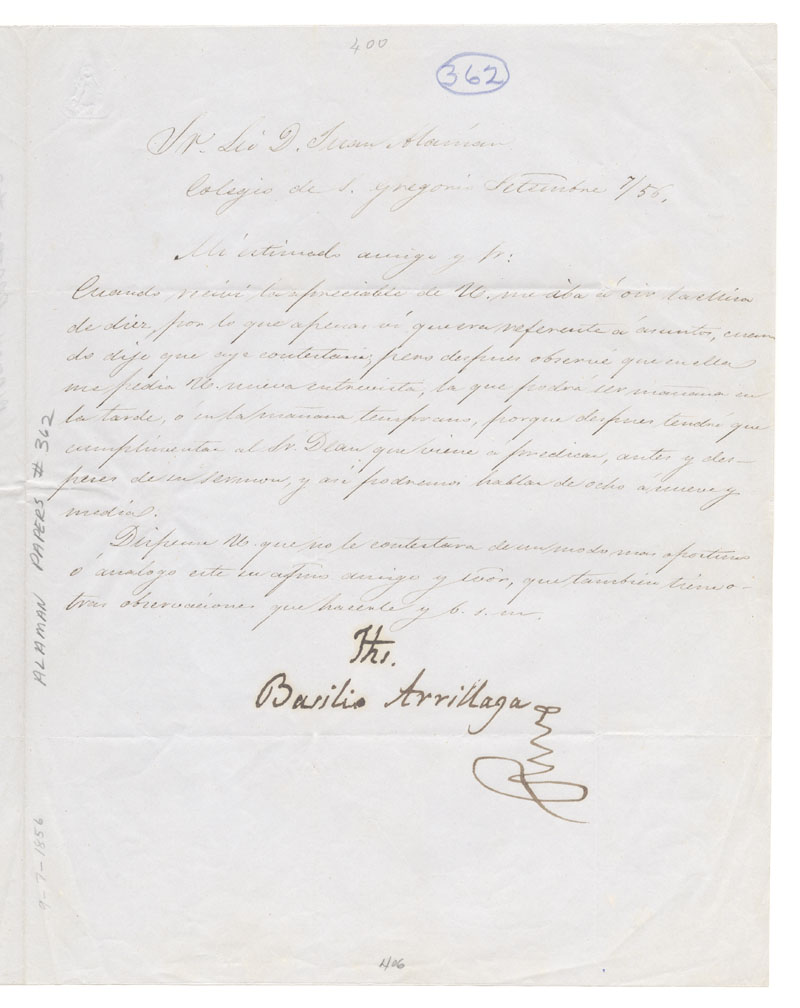 400
362
Sr. Lic D. Juan Alaman
Colegio de S. Gregorio Setiembre 7/56.
Mi estimado amigo y Sr:
Cuando recivi la apreciable de U. me iba á oir la Misa
de diez, por lo que apenas vi que era referente á asuntos, cuan
do dije que contestaria, pero despues observé que en ella
me pedia U. nueva entrevista, la que podrá ser mañana en
la tarde, ó en la mañana temprano, porque despues tendré que
cumplimentar al Sr. Dean que viene a predicar, antes y des-
pues de su sermon, y asi podremos hablar de ocho a nueve y
media.
Dispense U. que no le contestara de un modo mas oportuno
ó análogo este su afmo amigo y que tambien tiene o-
tras observaciones que hacerle y b. s. m.
Jhs.
Basilio Arrillaga
ALAMAN PAPERS # 362
9-7-1856
406